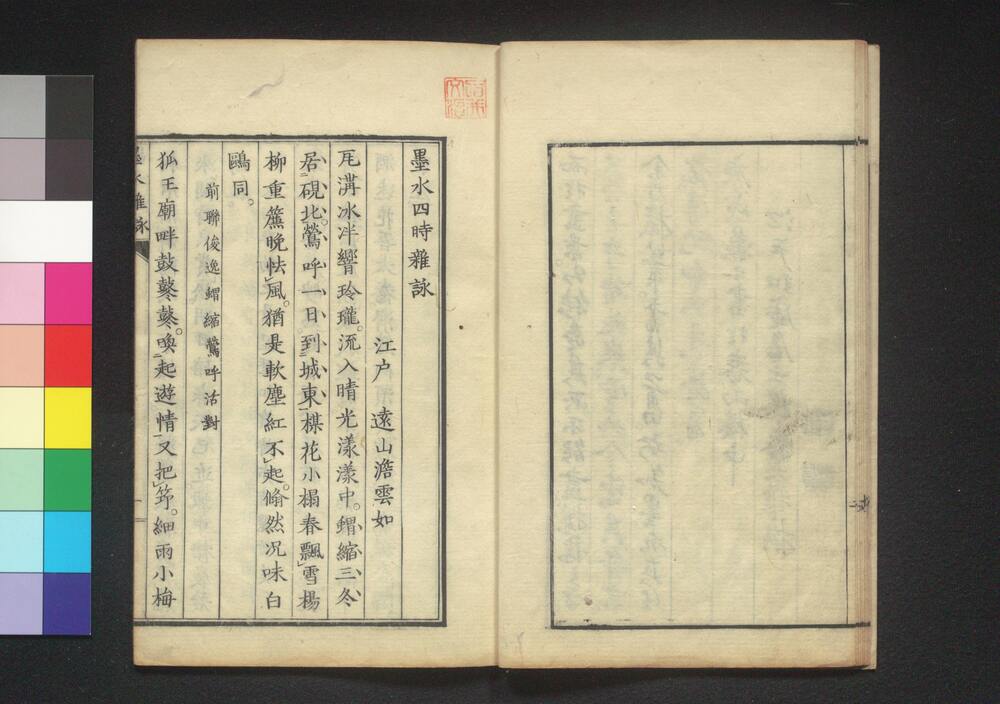 墨水四時雜詠
江戸　遠山澹雲如
瓦溝冰泮響玲瓏。流入晴光漾漾中。蝟縮三冬
居硯北。鶯呼一日到城東。棋花小榻春飄雪。楊
柳重簾晚怯風。猶是軟塵紅不起。翛然況味白
鷗同。
前聯俊逸蝟縮鶯呼活對
狐王廟畔鼓鼕鼕。喚起遊情又把筇。細雨小梅
墨水雜詠
一